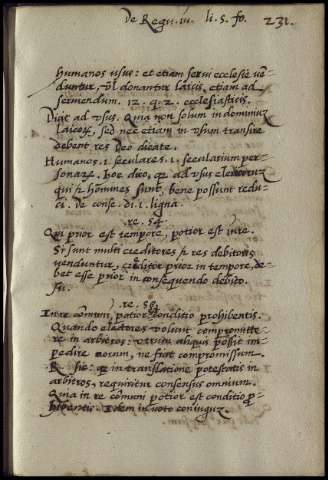 de Regu. iu. li. 5. fo. 231.
humanos vsus: et etiam serui ecclesie ve-
duntur, vl donantur laicis, etiam ad
seruiendum. 12. q. 2. ecclesiasticis.
Dicit ad vsus. Quia non solum in dominiu
laicorum, sed nec etiam in vsum transire
debent res Deo dicate.
Humanos. i. seculares. i. secularium per-
sonarum. hoc dico, quia ad vsus clericorum
qui sunt homines, bene possunt redu-
ci. de conse. di. 1. ligna.
re. 54.
Qui prior est tempore, potior est iure.
Si sunt multi creditores et res debitoris
venduntur, creditor prior in tempore, de-
bet esse prior in consequendo debito.
). re. 56.
In re comuni, potior conditio prohibentis.
Quando electores volunt compromitte-
re in arbitros: vtrum aliquis possit im-
pedire eorum, ne fiat compromissum.
R. sic: quia in translatione potestatis in
arbitros, requiritur consensus omnium.
Quia in re comuni potior est conditio p-
hibentis. Idem in voto coniugum.